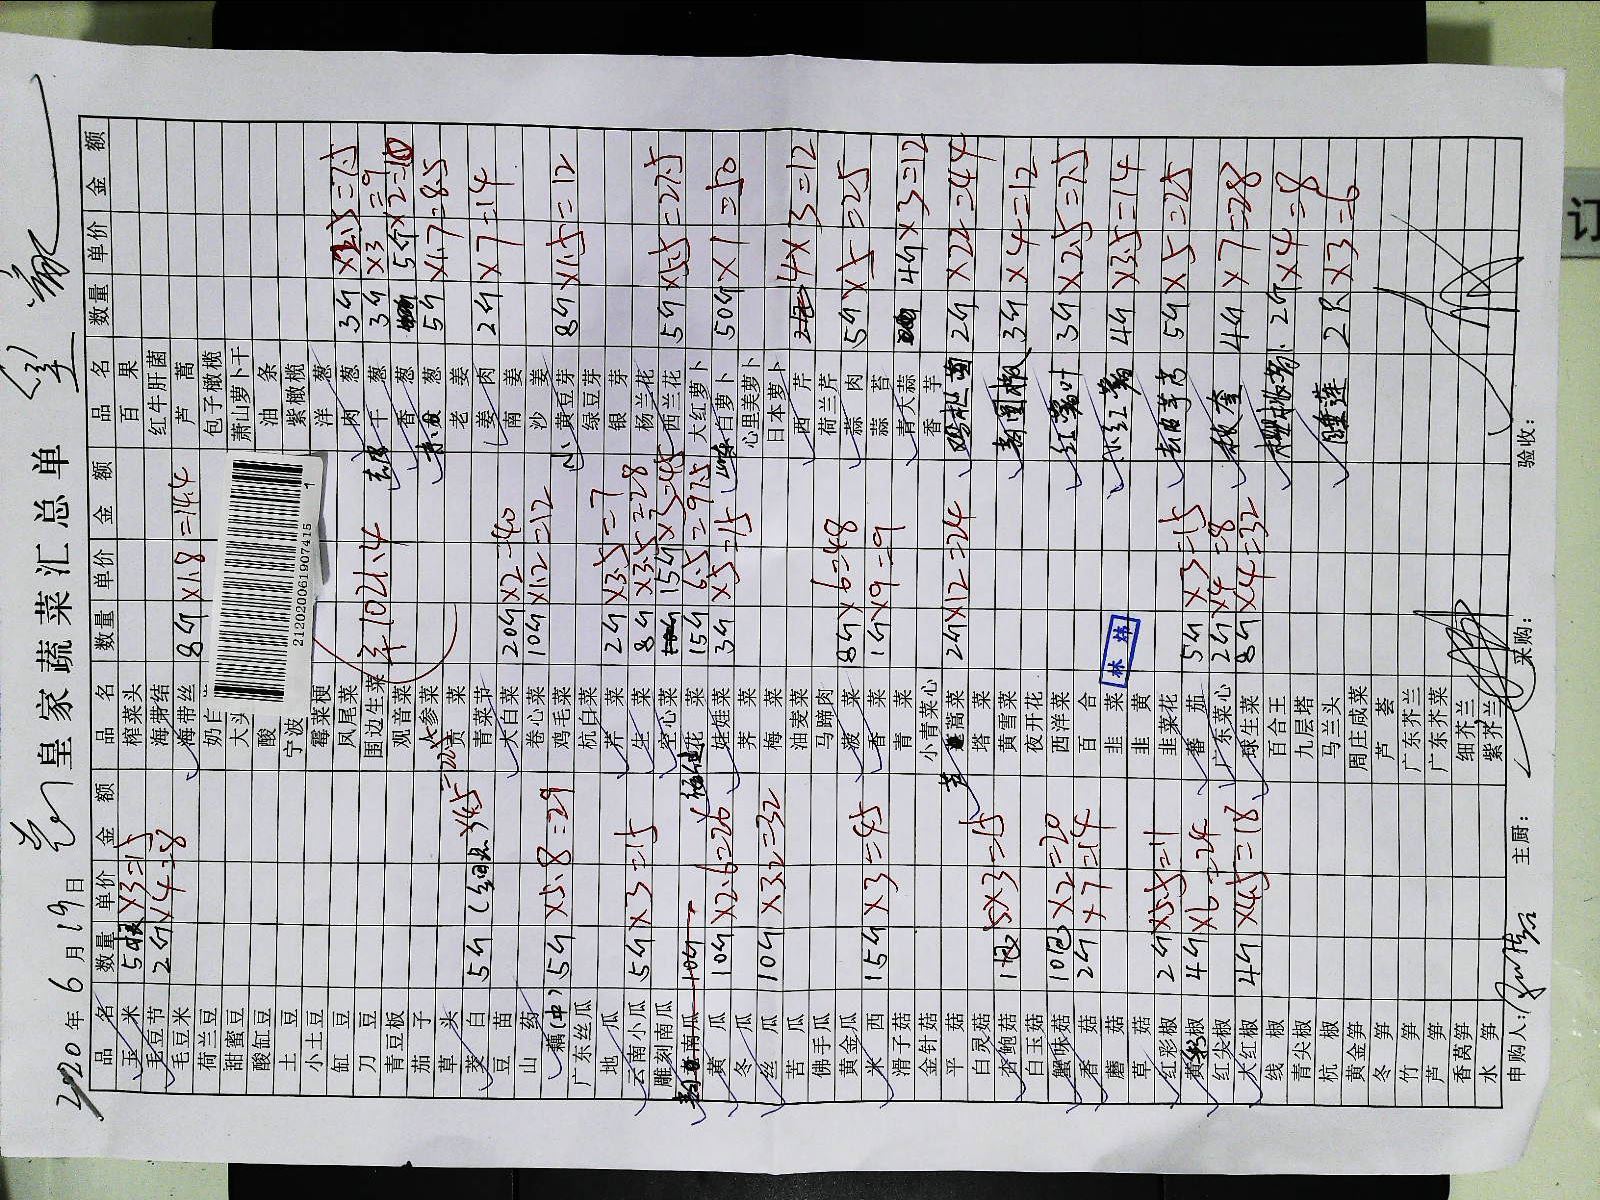 皇家蔬菜汇总单
2020年6月19日
品名 数量 单价 金额 品名 数量 单价 金额 品名 数量 单价 金额
玉米 5根 ×3=15 榨菜头 百果
毛豆节 2斤 ×4=8 海带结 红牛肝菌
毛豆米 海带丝 8斤 ×1.8=14.4 芦蒿
荷兰豆 包子橄榄
甜蜜豆 大头 萧山萝卜干
酸缸豆 酸 油条
土豆 宁波 紫橄榄
小土豆 霉菜梗 洋葱
缸豆 凤尾菜 肉葱 3斤 ×2.5=7.5
刀豆 围边生菜 干葱 3斤 ×3=9
青豆板 观音菜 香葱 5个×2=10
茄子 人参菜 葱 5斤 ×1.7=8.5
草头 贡菜 老姜
茭白 5斤 ×4.5 青菜节 姜肉 2斤 ×7=14
豆苗 大白菜 20斤 ×2=40 南姜
山药 卷心菜 10斤 ×1.2=12 沙姜
藕(中) 5斤 ×5.8=29 鸡毛菜 黄豆芽 8斤 ×1.5=12
广东丝瓜 杭白菜 绿豆芽
地瓜 芹菜 2斤 ×3.5=7 银芽
云南小瓜 5斤 ×3=15 生菜 8斤 ×3.5=28 杨兰花
雕刻南瓜 空心菜 15斤 ×3=45 西兰花 5斤 ×5.5=27.5
南瓜 10斤 花菜 15斤 6.5=97.5 大红萝卜
黄瓜 10斤 ×2.6=26 娃娃菜 3斤 ×5=15 白萝卜 50斤 ×1=50
冬瓜 荠菜 心里美萝卜
丝瓜 10斤 ×3.2=32 梅菜 日本萝卜
苦瓜 油麦菜 西芹 4×3=12
佛手瓜 马蹄肉 荷兰芹
黄金瓜 菠菜 8斤 ×6=48 蒜肉 5斤 ×5=25
米西 15斤 ×3=45 香菜 1斤 ×9=9 蒜苔
滑子菇 青菜 青大蒜 4斤 ×3=12
金针菇 小青菜心 香芋
平菇 蒿菜 2斤 ×12=24 鸡枞菌 2斤 ×22=44
白灵菇 塔菜
杏鲍菇 1包 5×3=15 黄雪菜 3斤 ×4=12
白玉菇 夜开花
蟹味菇 10包 ×2=20 西洋菜 红薯叶 3斤 ×2.5=7.5
香菇 2斤 ×7=14 百合
蘑菇 韭菜 小红薯 4斤 ×3.5=14
草菇 韭黄
红彩椒 2斤 ×5.5=11 韭菜花 5斤 ×5=25
黄彩椒 4斤 ×6=24 番茄 5斤 ×3=15
红尖椒 广东菜心 2斤 ×4=8 秋葵 4斤 ×7=28
大红椒 4斤 ×4.5=18 球生菜 8斤 ×4=32
线椒 百合王 2斤 ×4=8
青尖椒 九层塔
杭椒 马兰头 睡莲 2只 ×3=6
黄金笋 周庄咸菜
冬笋 芦荟
竹笋 广东芥兰
芦笋 广东芥菜
香莴笋 细芥兰
水笋 紫芥兰
¥1021.4
2120200619074151
1
林炜
申购人: 主厨: 采购: 验收:
订